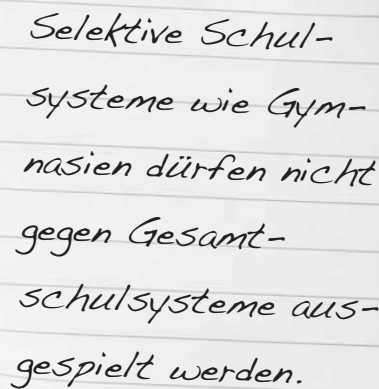 Selektive Schul-
systeme wie Gym-
nasien dürfen nicht
gegen Gesamt-
schulsysteme aus-
gespielt werden.